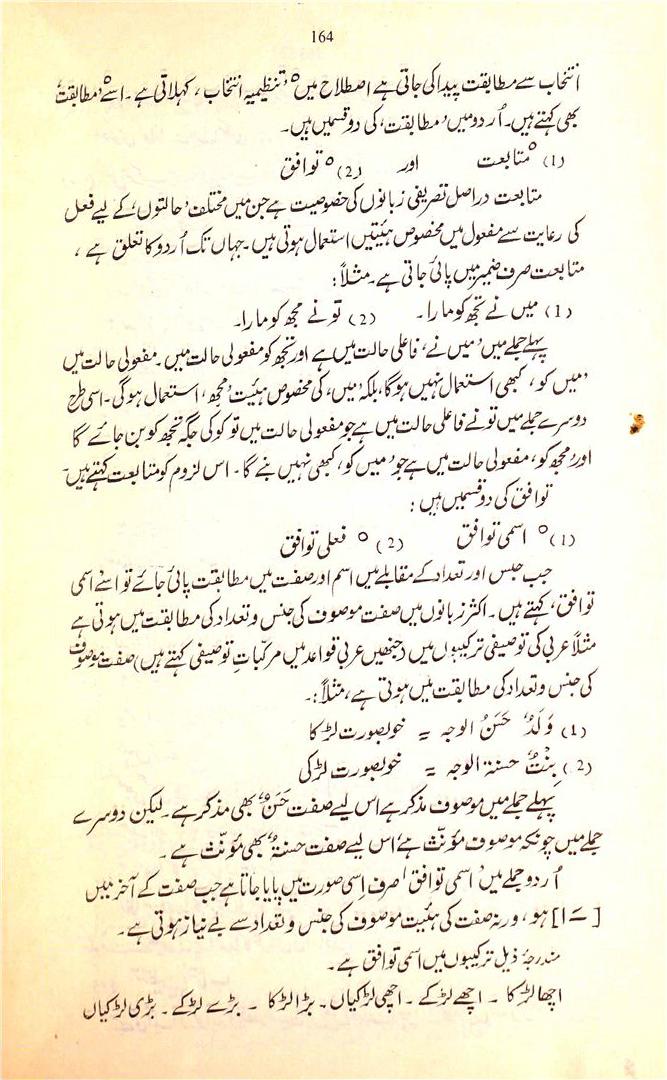 164
انتخاب سے مطابقت پیدا کی جاتی ہے اصطلاح میں °'تنظیمیہ انتخاب' کہلاتی ہے۔ اسے °'مطابقت'
بھی کہتے ہیں۔ اُردو میں 'مطابقت' کی دو قسمیں ہیں۔
(1) °متابعت اور (2) °توافق
متابعت دراصل تصریفی زبانوں کی خصوصیت ہے جن میں مختلف 'حالتوں' کے لیے فعل
کی رعایت سے مفعول میں مخصوص ہئیتیں استعمال ہوتی ہیں۔ جہاں تک اُردو کا تعلق ہے ،
متابعت صرف ضمیر میں پائی جاتی ہے۔ مثلاً :
(1) میں نے تجھ کو مارا۔ (2) تو نے مجھ کو مارا۔
پہلے جملے میں 'میں نے' فاعلی حالت میں ہے اور تجھ کو مفعولی حالت میں۔ مفعولی حالت میں
'میں کو' کبھی استعمال نہیں ہوگا، بلکہ 'میں' کی مخصوص ہئیت 'مجھ' استعمال ہوگی۔ اسی طرح
دوسرے جملے میں تو نے فاعلی حالت میں ہے جو مفعولی حالت میں تو کو کی جگہ تجھ کو بن جائے گا
اور 'مجھ کو' مفعولی حالت میں ہے جو 'میں کو' کبھی نہیں بنے گا۔ اس لزوم کو متابعت کہتے ہیں۔
توافق کی دو قسمیں ہیں :
(1) ° اسمی توافق (2) ° فعلی توافق
جب جنس اور تعداد کے مقابلے میں اسم اور صفت میں مطابقت پائی جائے تو اسے 'اسمی
توافق' کہتے ہیں۔ اکثر زبانوں میں صفت موصوف کی جنس و تعداد کی مطابقت میں ہوتی ہے
مثلاً عربی کی توصیفی ترکیبوں میں (جنھیں عربی قواعد میں مرکباتِ توصیفی کہتے ہیں) صفت موصوف
کی جنس و تعداد کی مطابقت میں ہوتی ہے، مثلاً :۔
(1) وَلَدٌ حَسَنُ الوجہ = خوبصورت لڑکا
(2) بِنْتٌ حسنۃ الوجہ = خوبصورت لڑکی
پہلے جملے میں موصوف مذکر ہے اس لیے صفت 'حَسَنٌ' بھی مذکر ہے۔ لیکن دوسرے
جملے میں چونکہ موصوف مؤنّث ہے اس لیے صفت 'حسنۃٌ' بھی مؤنّث ہے۔
اُردو جملے میں 'اسمی توافق' صرف اِسی صورت میں پایا جاتا ہے جب صفت کے آخر میں
[ ے ا ] ہو، ورنہ صفت کی ہئیت موصوف کی جنس و تعداد سے بے نیاز ہوتی ہے۔
مندرجۂ ذیل ترکیبوں میں اسمی توافق ہے۔
اچھا لڑکا ۔ اچھے لڑکے ۔ اچھی لڑکیاں۔ بڑا لڑکا ۔ بڑے لڑکے ۔ بڑی لڑکیاں